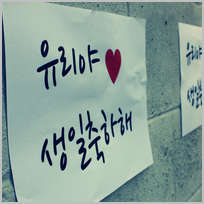 유리야♥
생일축하해
유리야
생일